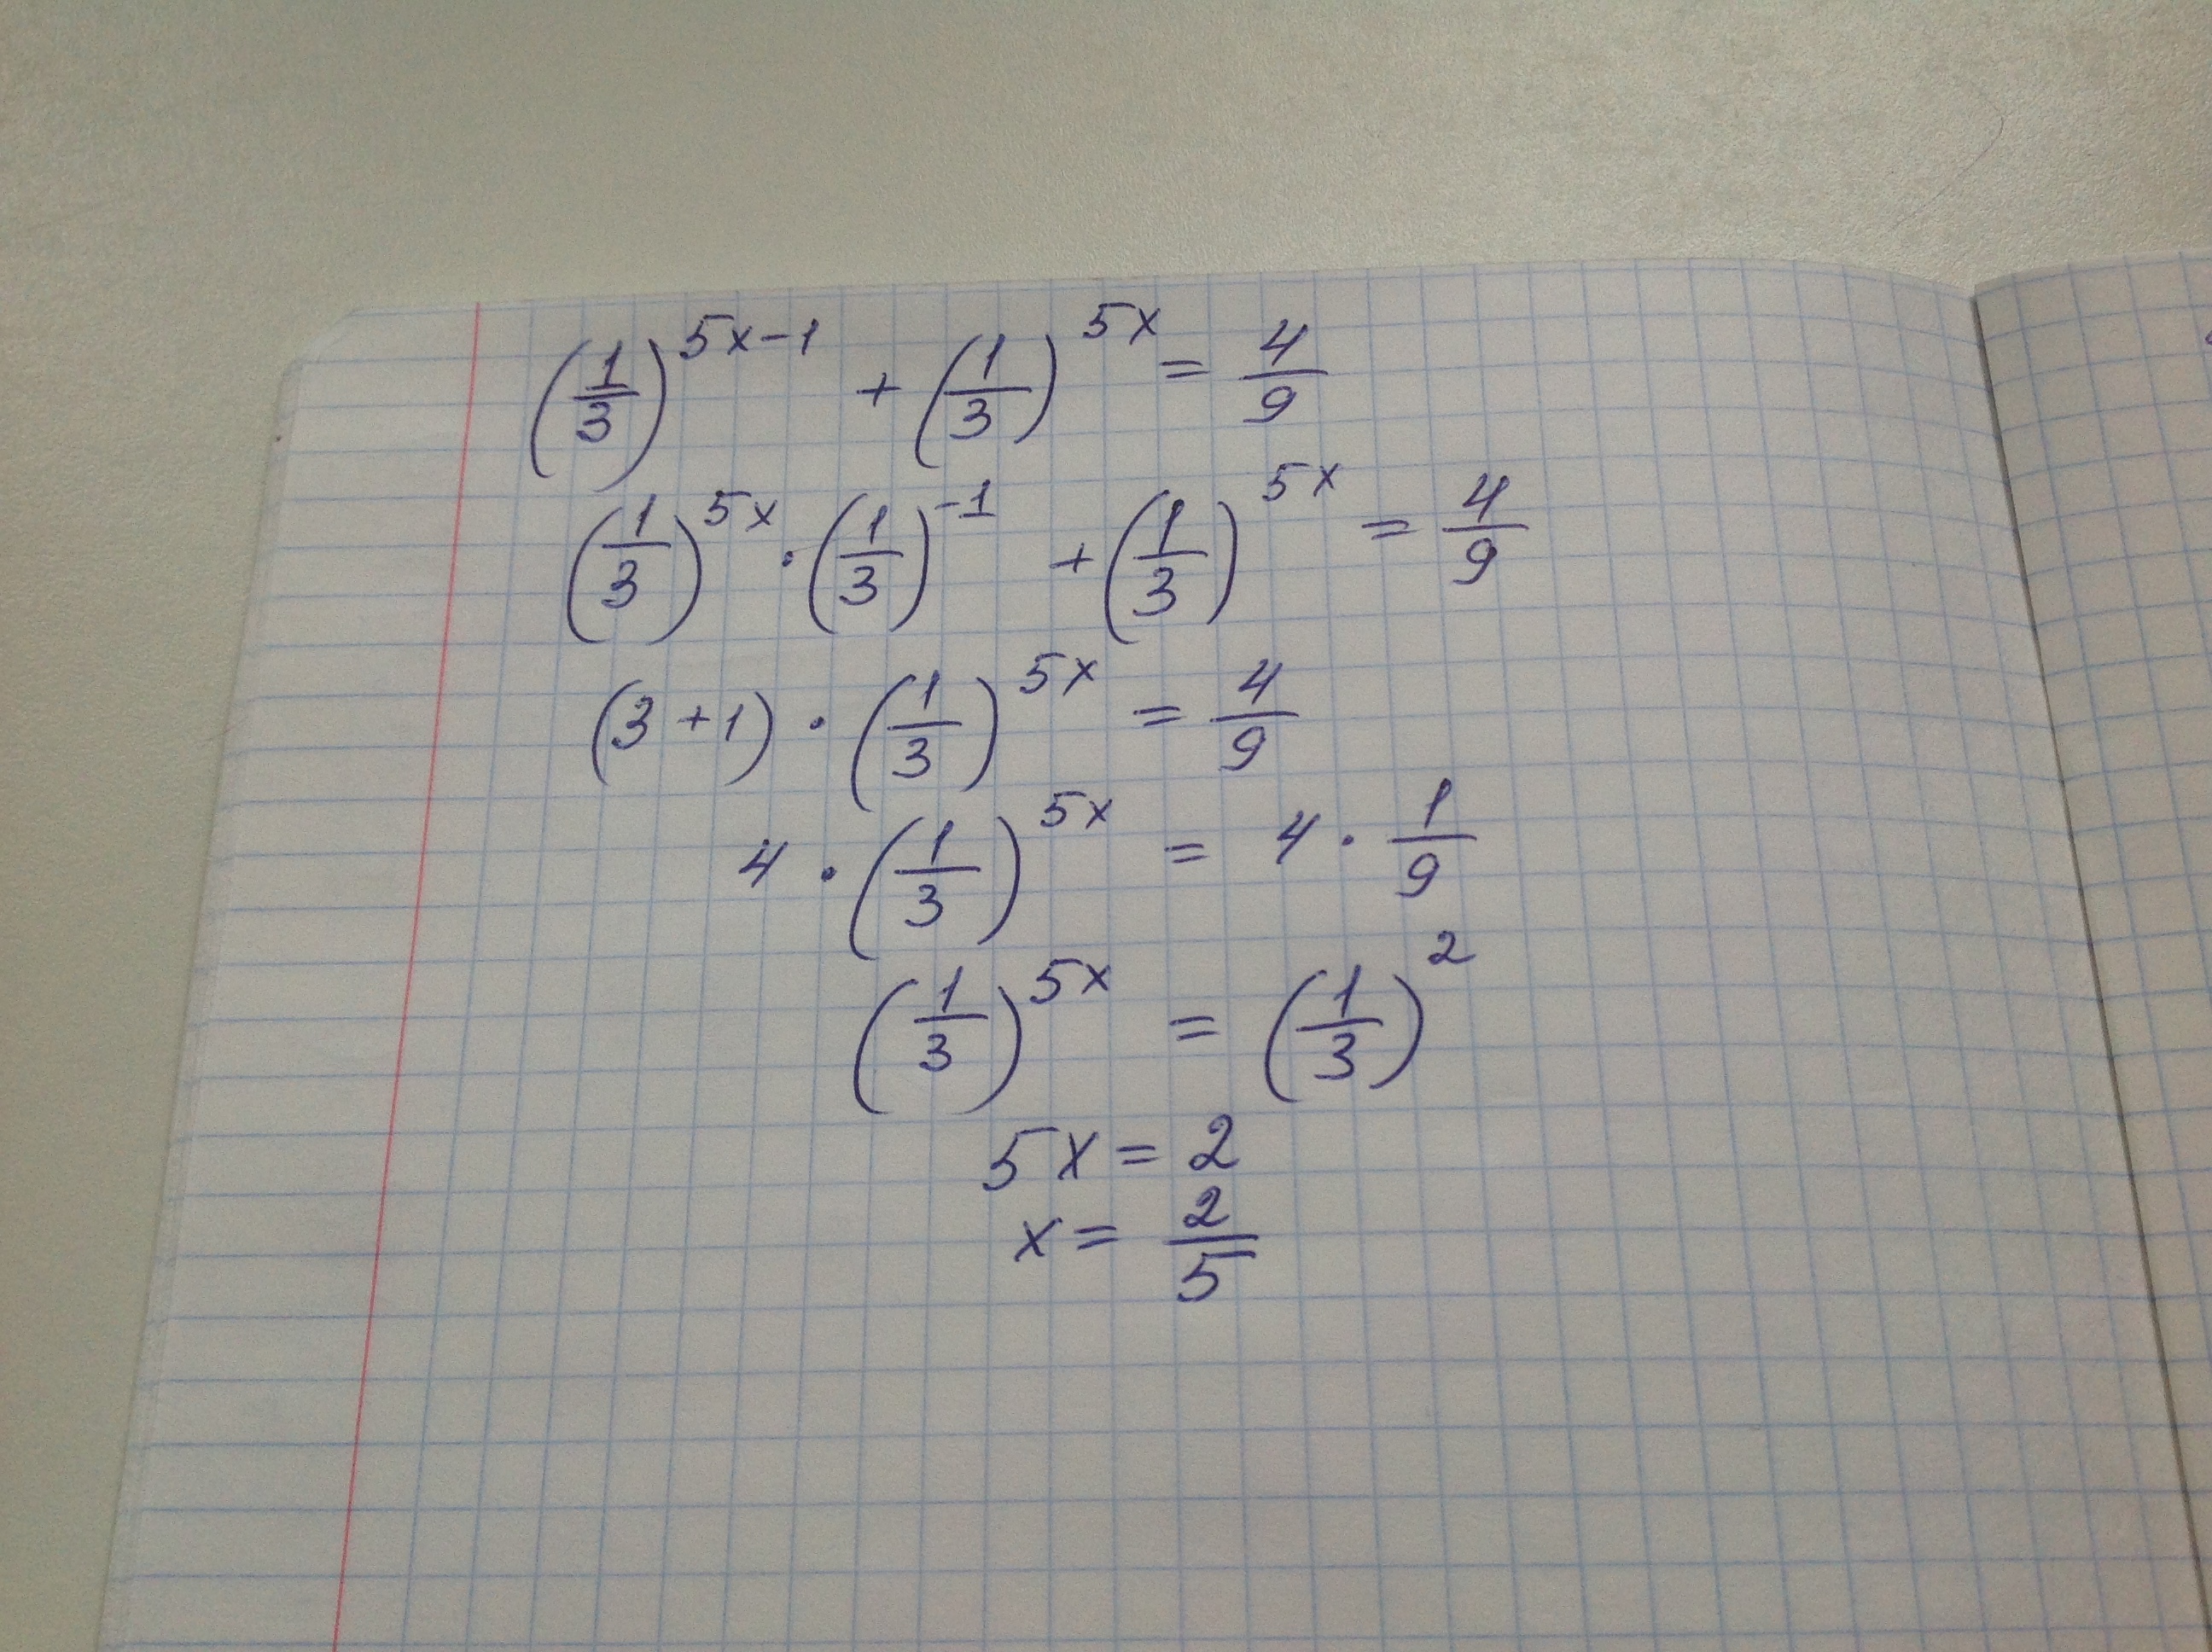 (1/3)^(5x-1) + (1/3)^(5x) = 4/9
(1/3)^(5x) · (1/3)^(-1) + (1/3)^(5x) = 4/9
(3+1) · (1/3)^(5x) = 4/9
4 · (1/3)^(5x) = 4 · 1/9
(1/3)^(5x) = (1/3)^2
5x = 2
x = 2/5